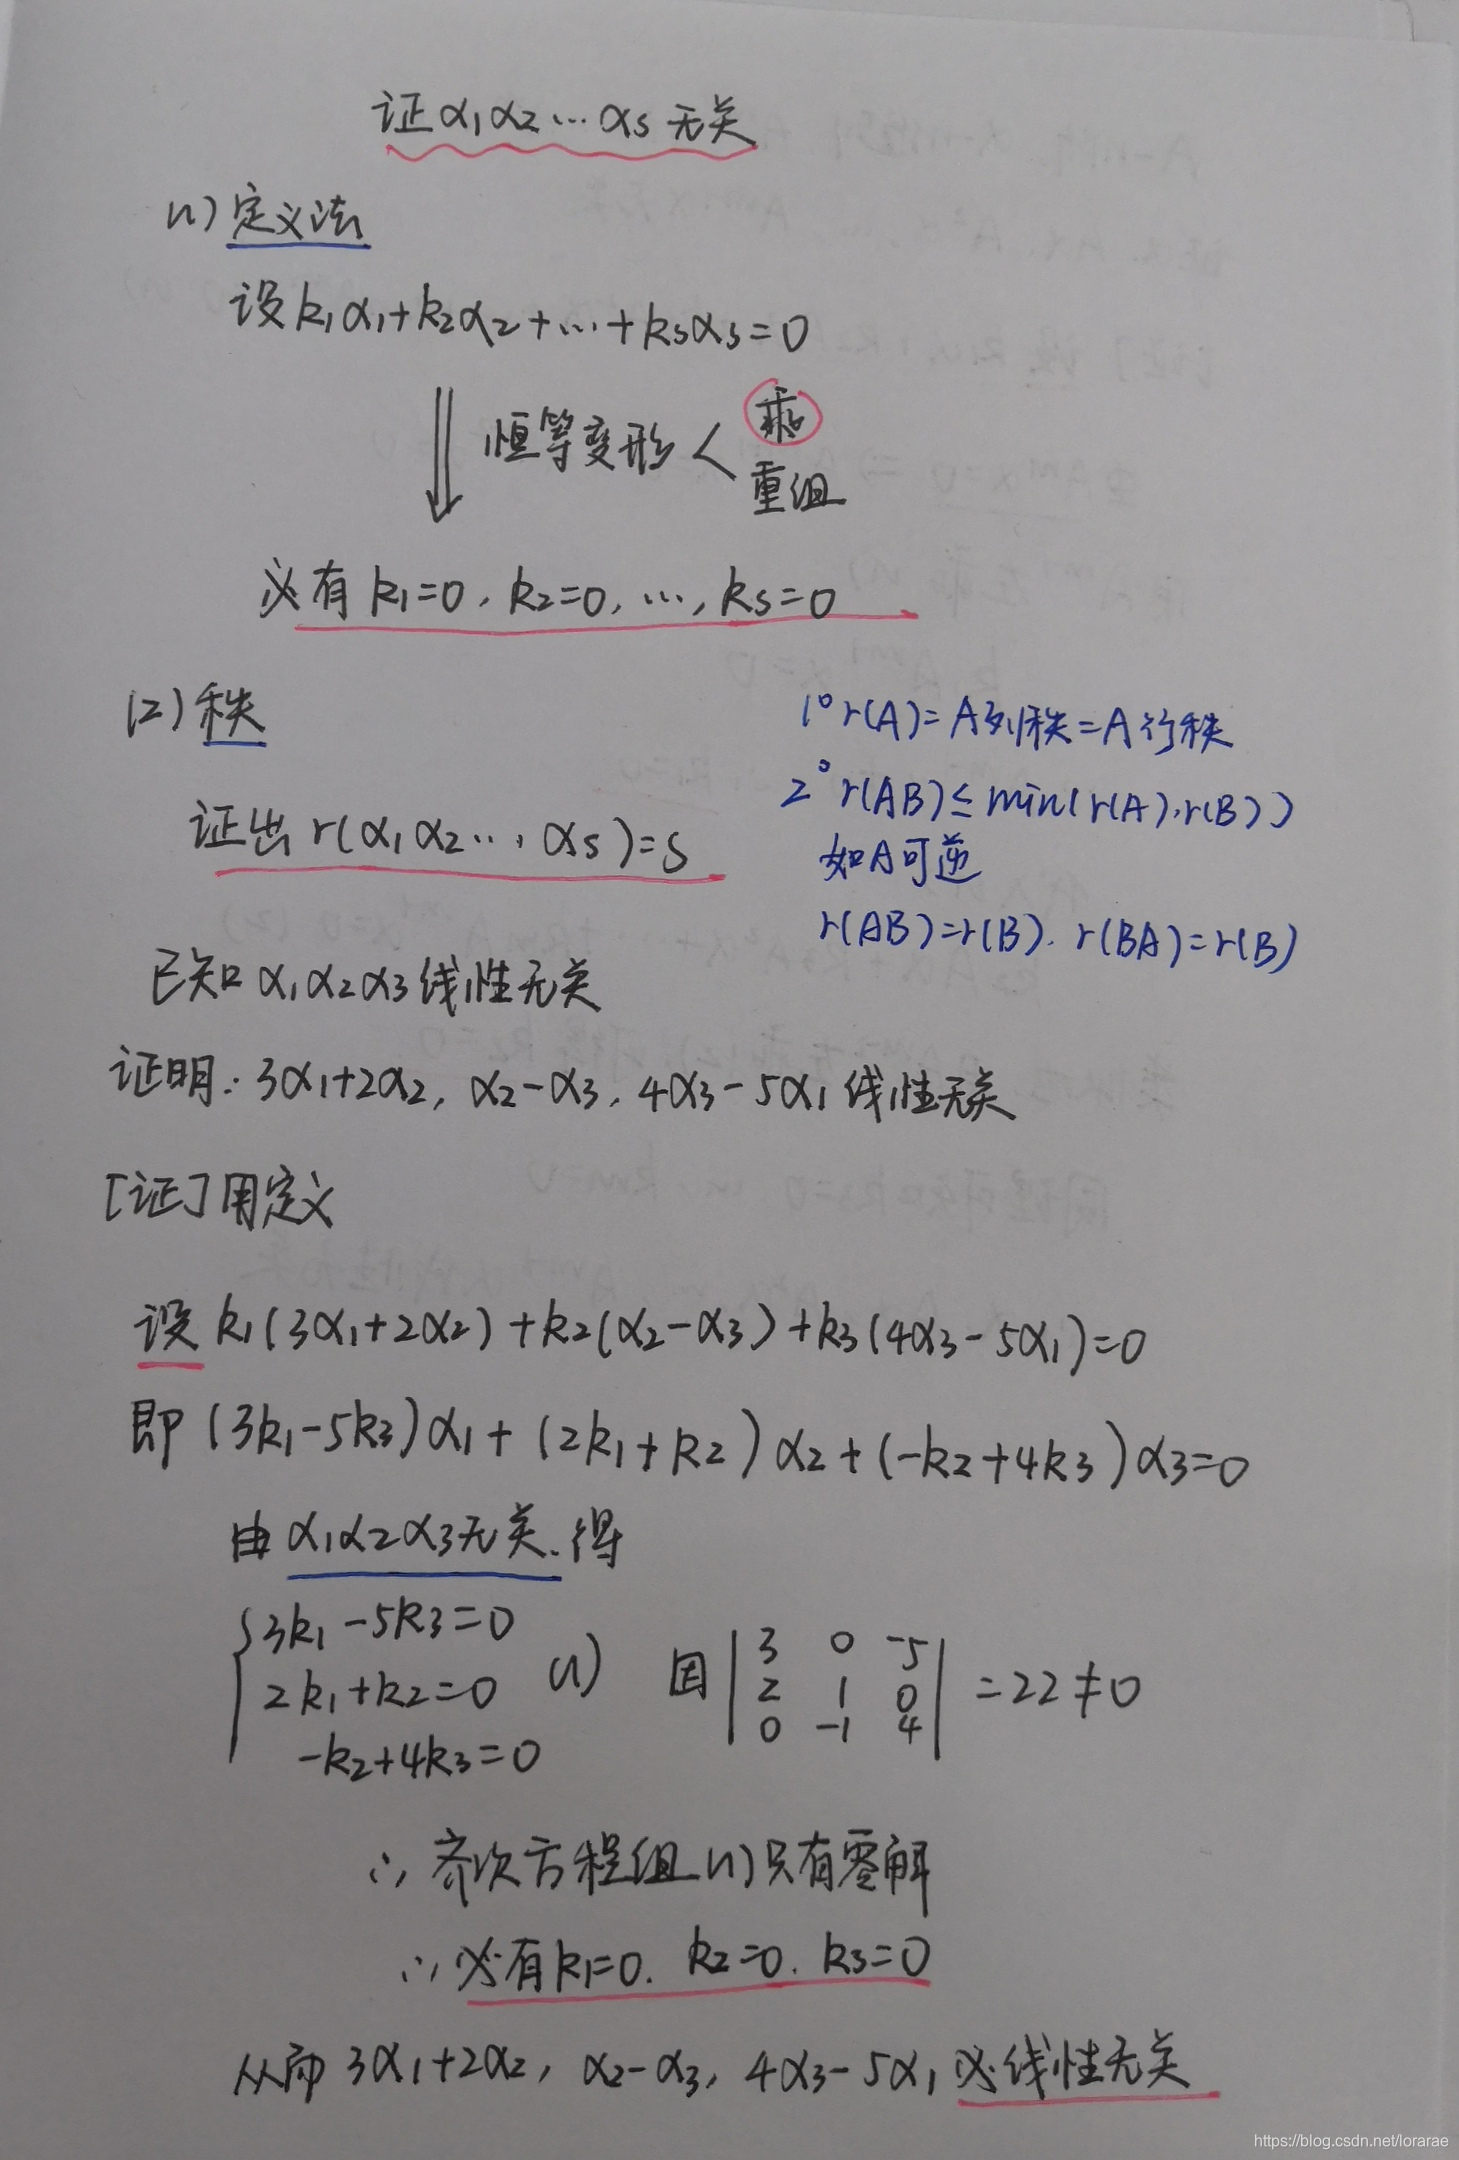 证α₁α₂…αs无关
(1)定义法
设k₁α₁+k₂α₂+…+ksαs=0
恒等变形<乘
重组
必有k₁=0,k₂=0,…,ks=0
(2)秩
证出r(α₁α₂…,αs)=s
1°r(A)=A列秩=A行秩
2°r(AB)≤min(r(A),r(B))
如A可逆
r(AB)=r(B).r(BA)=r(B)
已知α₁α₂α₃线性无关
证明:3α₁+2α₂,α₂-α₃,4α₃-5α₁线性无关
[证]用定义
设k₁(3α₁+2α₂)+k₂(α₂-α₃)+k₃(4α₃-5α₁)=0
即(3k₁-5k₃)α₁+(2k₁+k₂)α₂+(-k₂+4k₃)α₃=0
由α₁α₂α₃无关.得
3k₁-5k₃=0
2k₁+k₂=0 (1)
-k₂+4k₃=0
因|3 0 -5
2 1 0
0 -1 4|=22≠0
∴齐次方程组(1)只有零解
∴必有k₁=0.k₂=0.k₃=0
从而3α₁+2α₂,α₂-α₃,4α₃-5α₁必线性无关
https://blog.csdn.net/lorarae